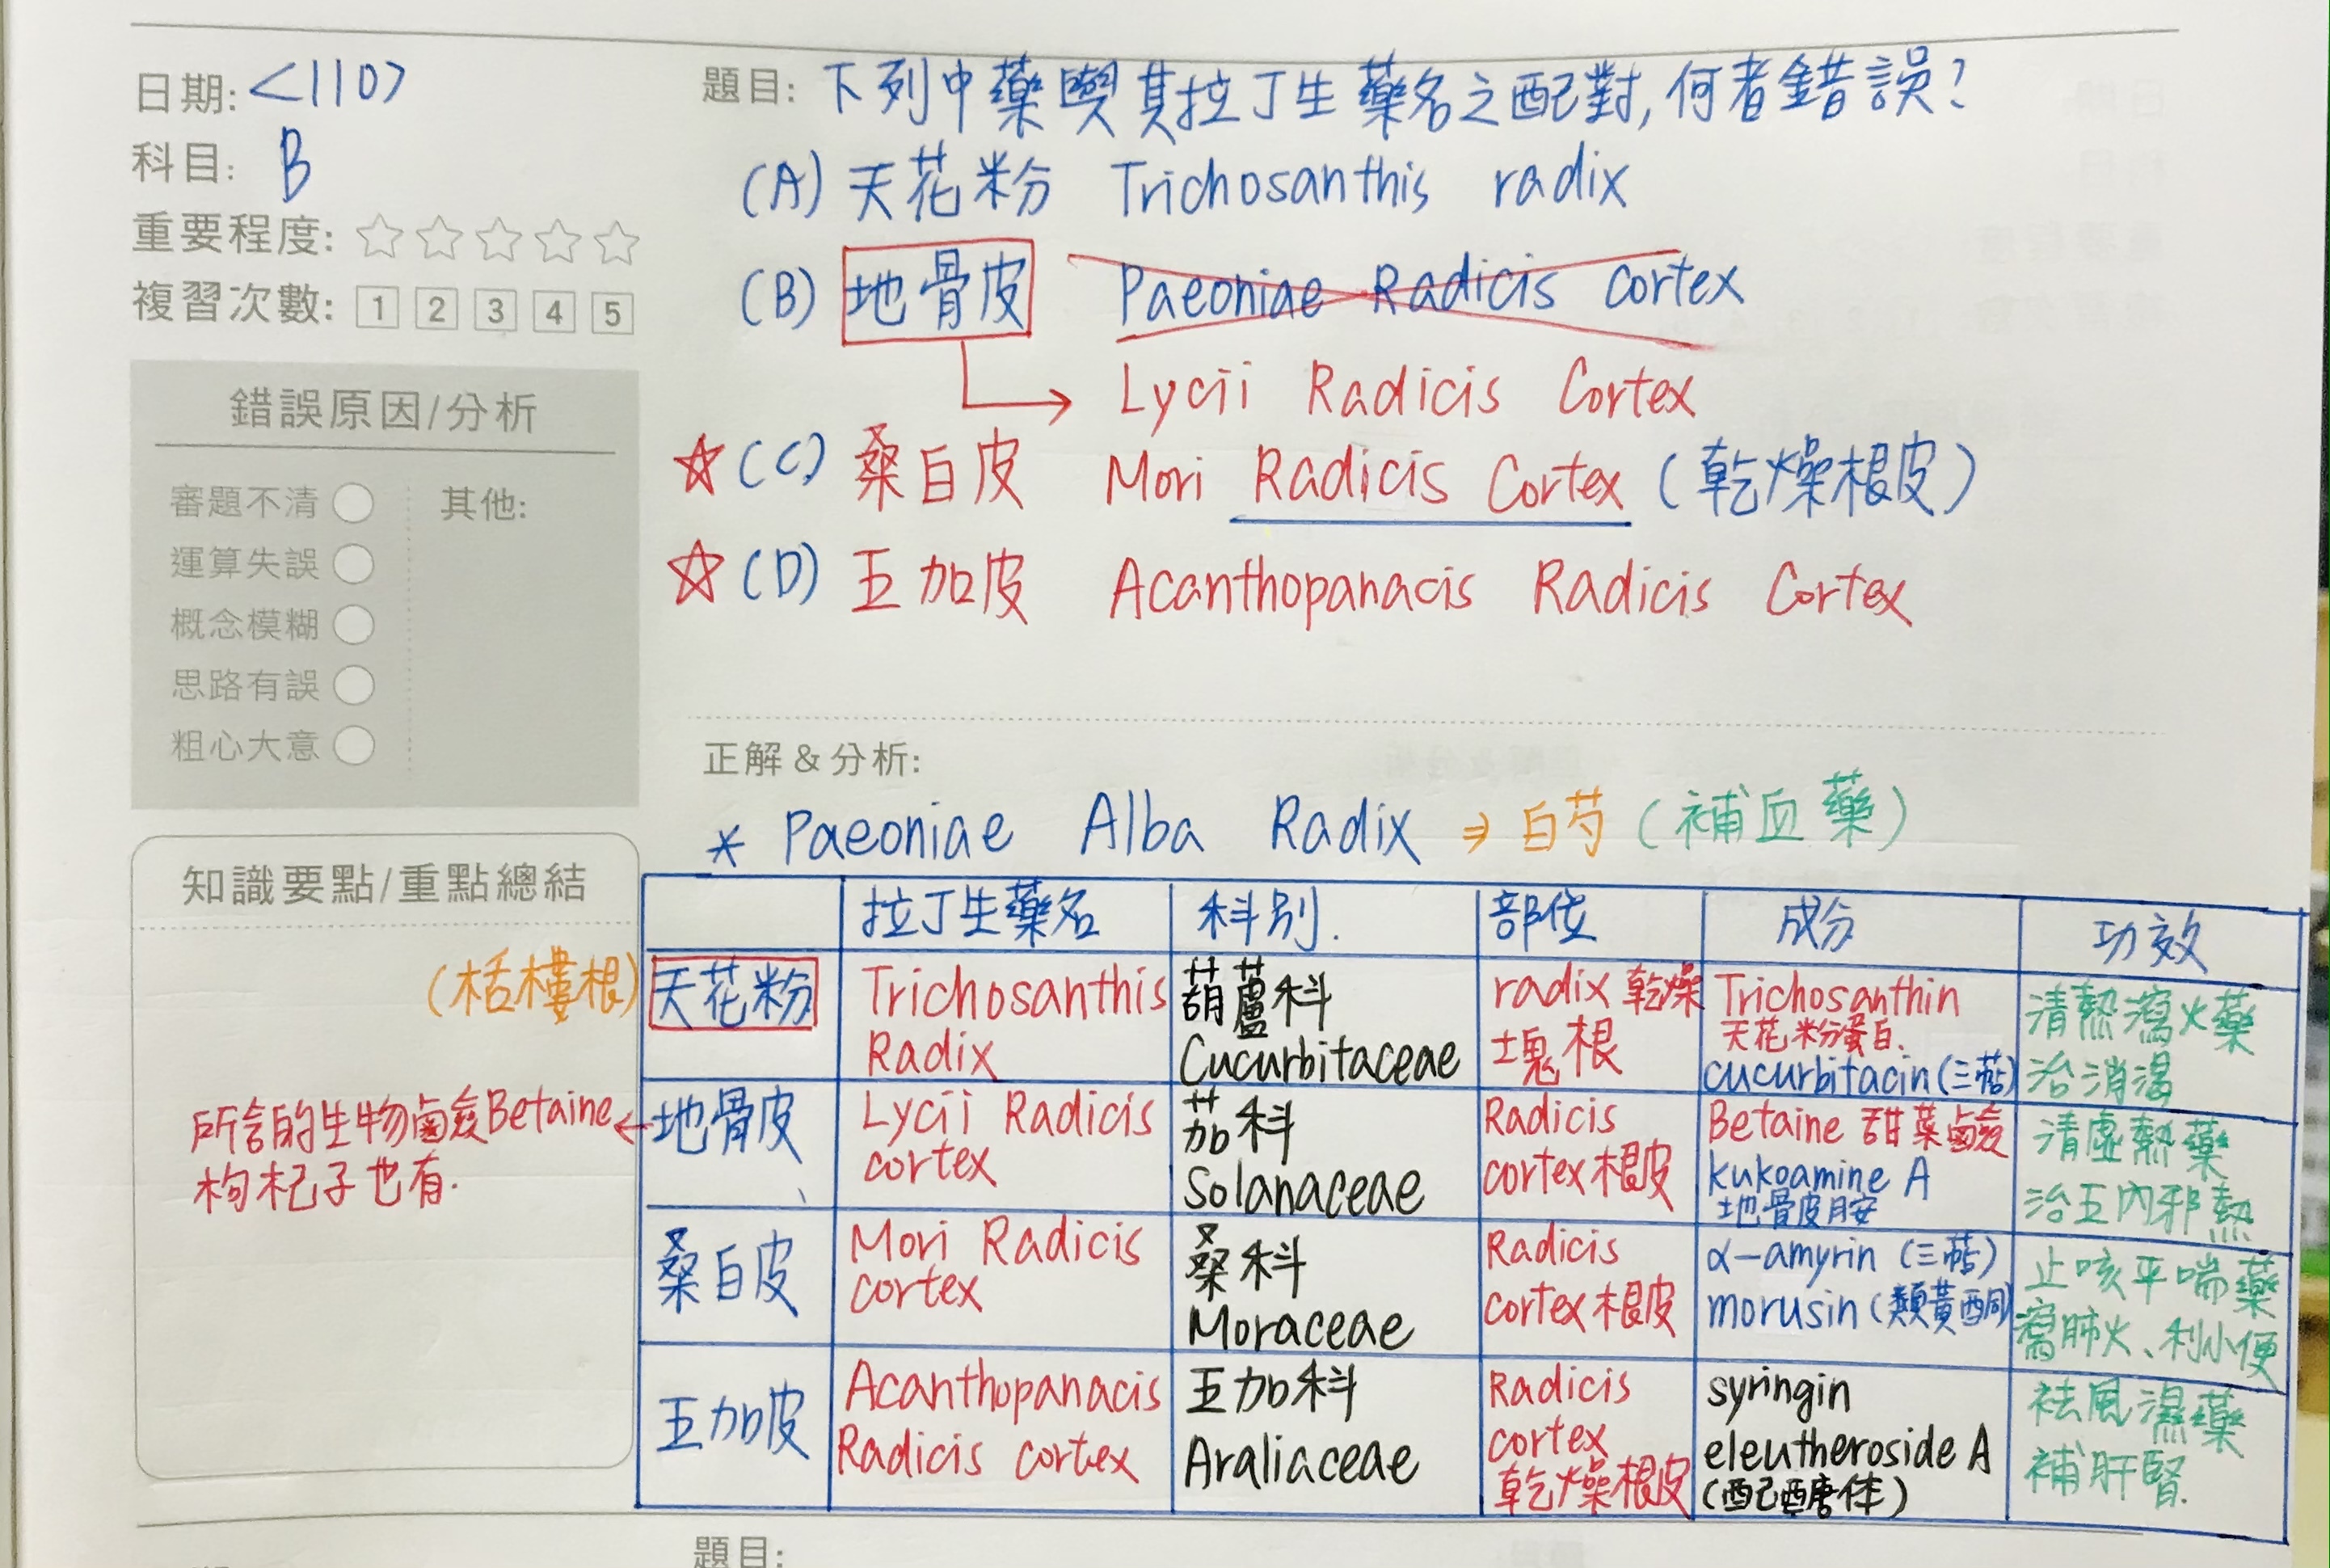 日期: <110>
科目: B
重要程度: ☆☆☆☆☆
複習次數: 1 2 3 4 5
錯誤原因/分析
審題不清
運算失誤
概念模糊
思路有誤
粗心大意
其他:
題目: 下列中藥與其拉丁生藥名之配對,何者錯誤?
(A) 天花粉 Trichosanthis radix
(B) 地骨皮 Paeoniae Radicis Cortex
→ Lycii Radicis Cortex
☆ (C) 桑白皮 Mori Radicis Cortex (乾燥根皮)
☆ (D) 五加皮 Acanthopanacis Radicis Cortex
正解 & 分析:
* Paeoniae Alba Radix ⇒ 白芍 (補血藥)
知識要點/重點總結
(栝樓根)
所含的生物鹼Betaine←
枸杞子也有.
拉丁生藥名 科別. 部位 成分 功效
天花粉 Trichosanthis Radix 葫蘆科 Cucurbitaceae radix 乾燥塊根 Trichosanthin 天花粉蛋白. cucurbitacin (三萜) 清熱瀉火藥 治消渴
地骨皮 Lycii Radicis cortex 茄科 Solanaceae Radicis cortex 根皮 Betaine 甜菜鹼 kukoamine A 地骨皮胺 清虛熱藥 治五內邪熱
桑白皮 Mori Radicis cortex 桑科 Moraceae Radicis cortex 根皮 α-amyrin (三萜) morusin (類黃酮) 止咳平喘藥 瀉肺火、利小便
五加皮 Acanthopanacis Radicis cortex 五加科 Araliaceae Radicis cortex 乾燥根皮 syringin eleutheroside A (配醣体) 祛風濕藥 補肝腎.
題目: